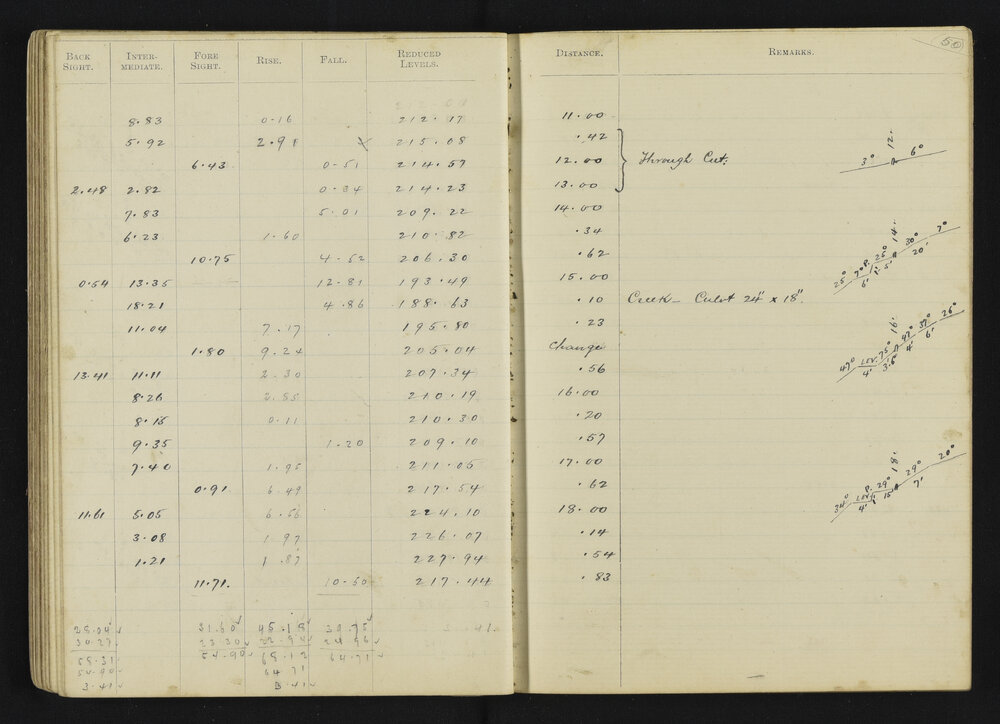 BACK SIGHT. INTER-MEDIATE. FORE SIGHT. RISE. FALL. REDUCED LEVELS. DISTANCE. REMARKS. 50
8.83 0.16 212.17 11.00
5.92 2.91 215.08 .42
6.43 0.51 214.57 12.00 Through Cut.
2.48 2.82 0.34 214.23 13.00
7.83 5.01 209.22 14.00
6.23 1.60 210.82 .34
10.75 4.52 206.30 .62
0.54 13.35 12.81 193.49 15.00
18.21 4.86 188.63 .10 Creek - Culvt 24" x 18".
11.04 7.17 195.80 .23
1.80 9.24 205.04 Change
13.41 11.11 2.30 207.34 .56
8.26 2.85 210.19 16.00
8.15 0.11 210.30 .20
9.35 1.20 209.10 .57
7.40 1.95 211.05 17.00
0.91 6.49 217.54 .62
11.61 5.05 6.56 224.10 18.00
3.08 1.97 226.07 .14
1.21 1.87 227.94 .54
11.71. 10.50 217.44 .83
28.04 31.60 45.18 39.75
30.27 23.30 22.94 24.96
58.31 54.90 68.12 64.71
54.90 64.71
3.41 3.41
12.
3° 6°
14.
25° 7° P. 25° 30° 7°
6' 5' 20'
16.
47° LEV. 75° 47° 37° 26°
4' 3.6' 4' 6'
18.
34° LEV. P. 29° 29° 20°
4' 15' 7'